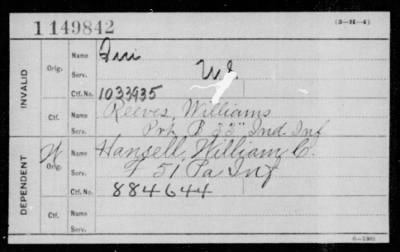 1149842 (3-H-4)
INVALID
Orig. Name
Serv.
Ctf. No. 1033935
Name Reeves, Williams
Div. Serv. Prt B 33" Ind Inf
Ctf. No.
DEPENDENT
W Orig. Name Hansell, William C.
Serv. F 51 Pa Inf
Ctf. No. 884644
Name
Div. Serv.
Ctf. No.